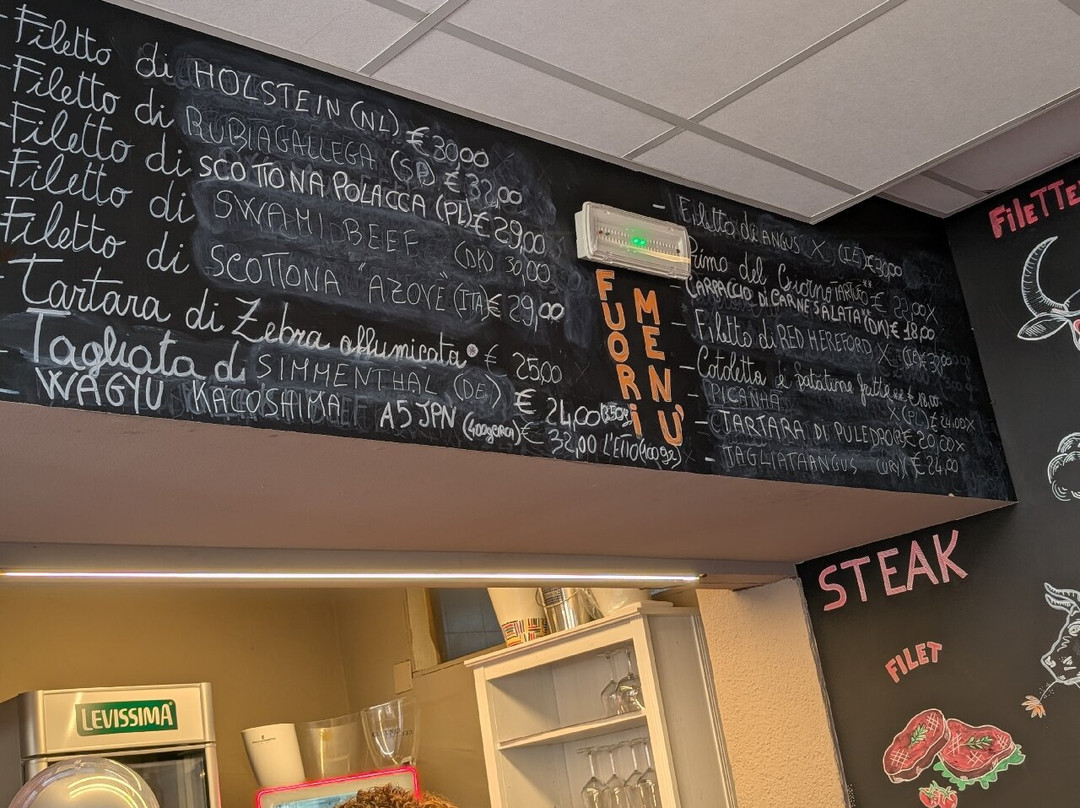 -Filetto di HOLSTEIN (NL) € 30,00
-Filetto di RUBIAGALLEGA (SP) € 32,00
-Filetto di SCOTTONA POLACCA (PL) € 29,00
-Filetto di SWAMI BEEF (DK) 30,00
-Filetto di SCOTTONA "AZOVÈ" (ITA) € 29,00
-Tartara di Zebra affumicata* € 25,00
-Tagliata di SIMMENTHAL (DE) € 24,00 (350g)
-WAGYU KAGOSHIMA A5 JPN (400g CIRCA) € 32,00 L'ETTO (100gr)
FUORI
MENÙ
- Filetto di ANGUS X (IE) € 30,00
Primo del Giorno TARTUFO** € 23,00 X
CARPACCIO DI CARNE SALATA" (TN) € 18,00
- Filetto di RED HEREFORD
- Cotoletta e patatine fritte € 18,00
- PICANHA X (PL) € 24,00 X
- TARTARA DI PULEDRO € 20,00 X
- TAGLIATA ANGUS (URY) € 24,00
STEAK
FILET
LEVISSIMA